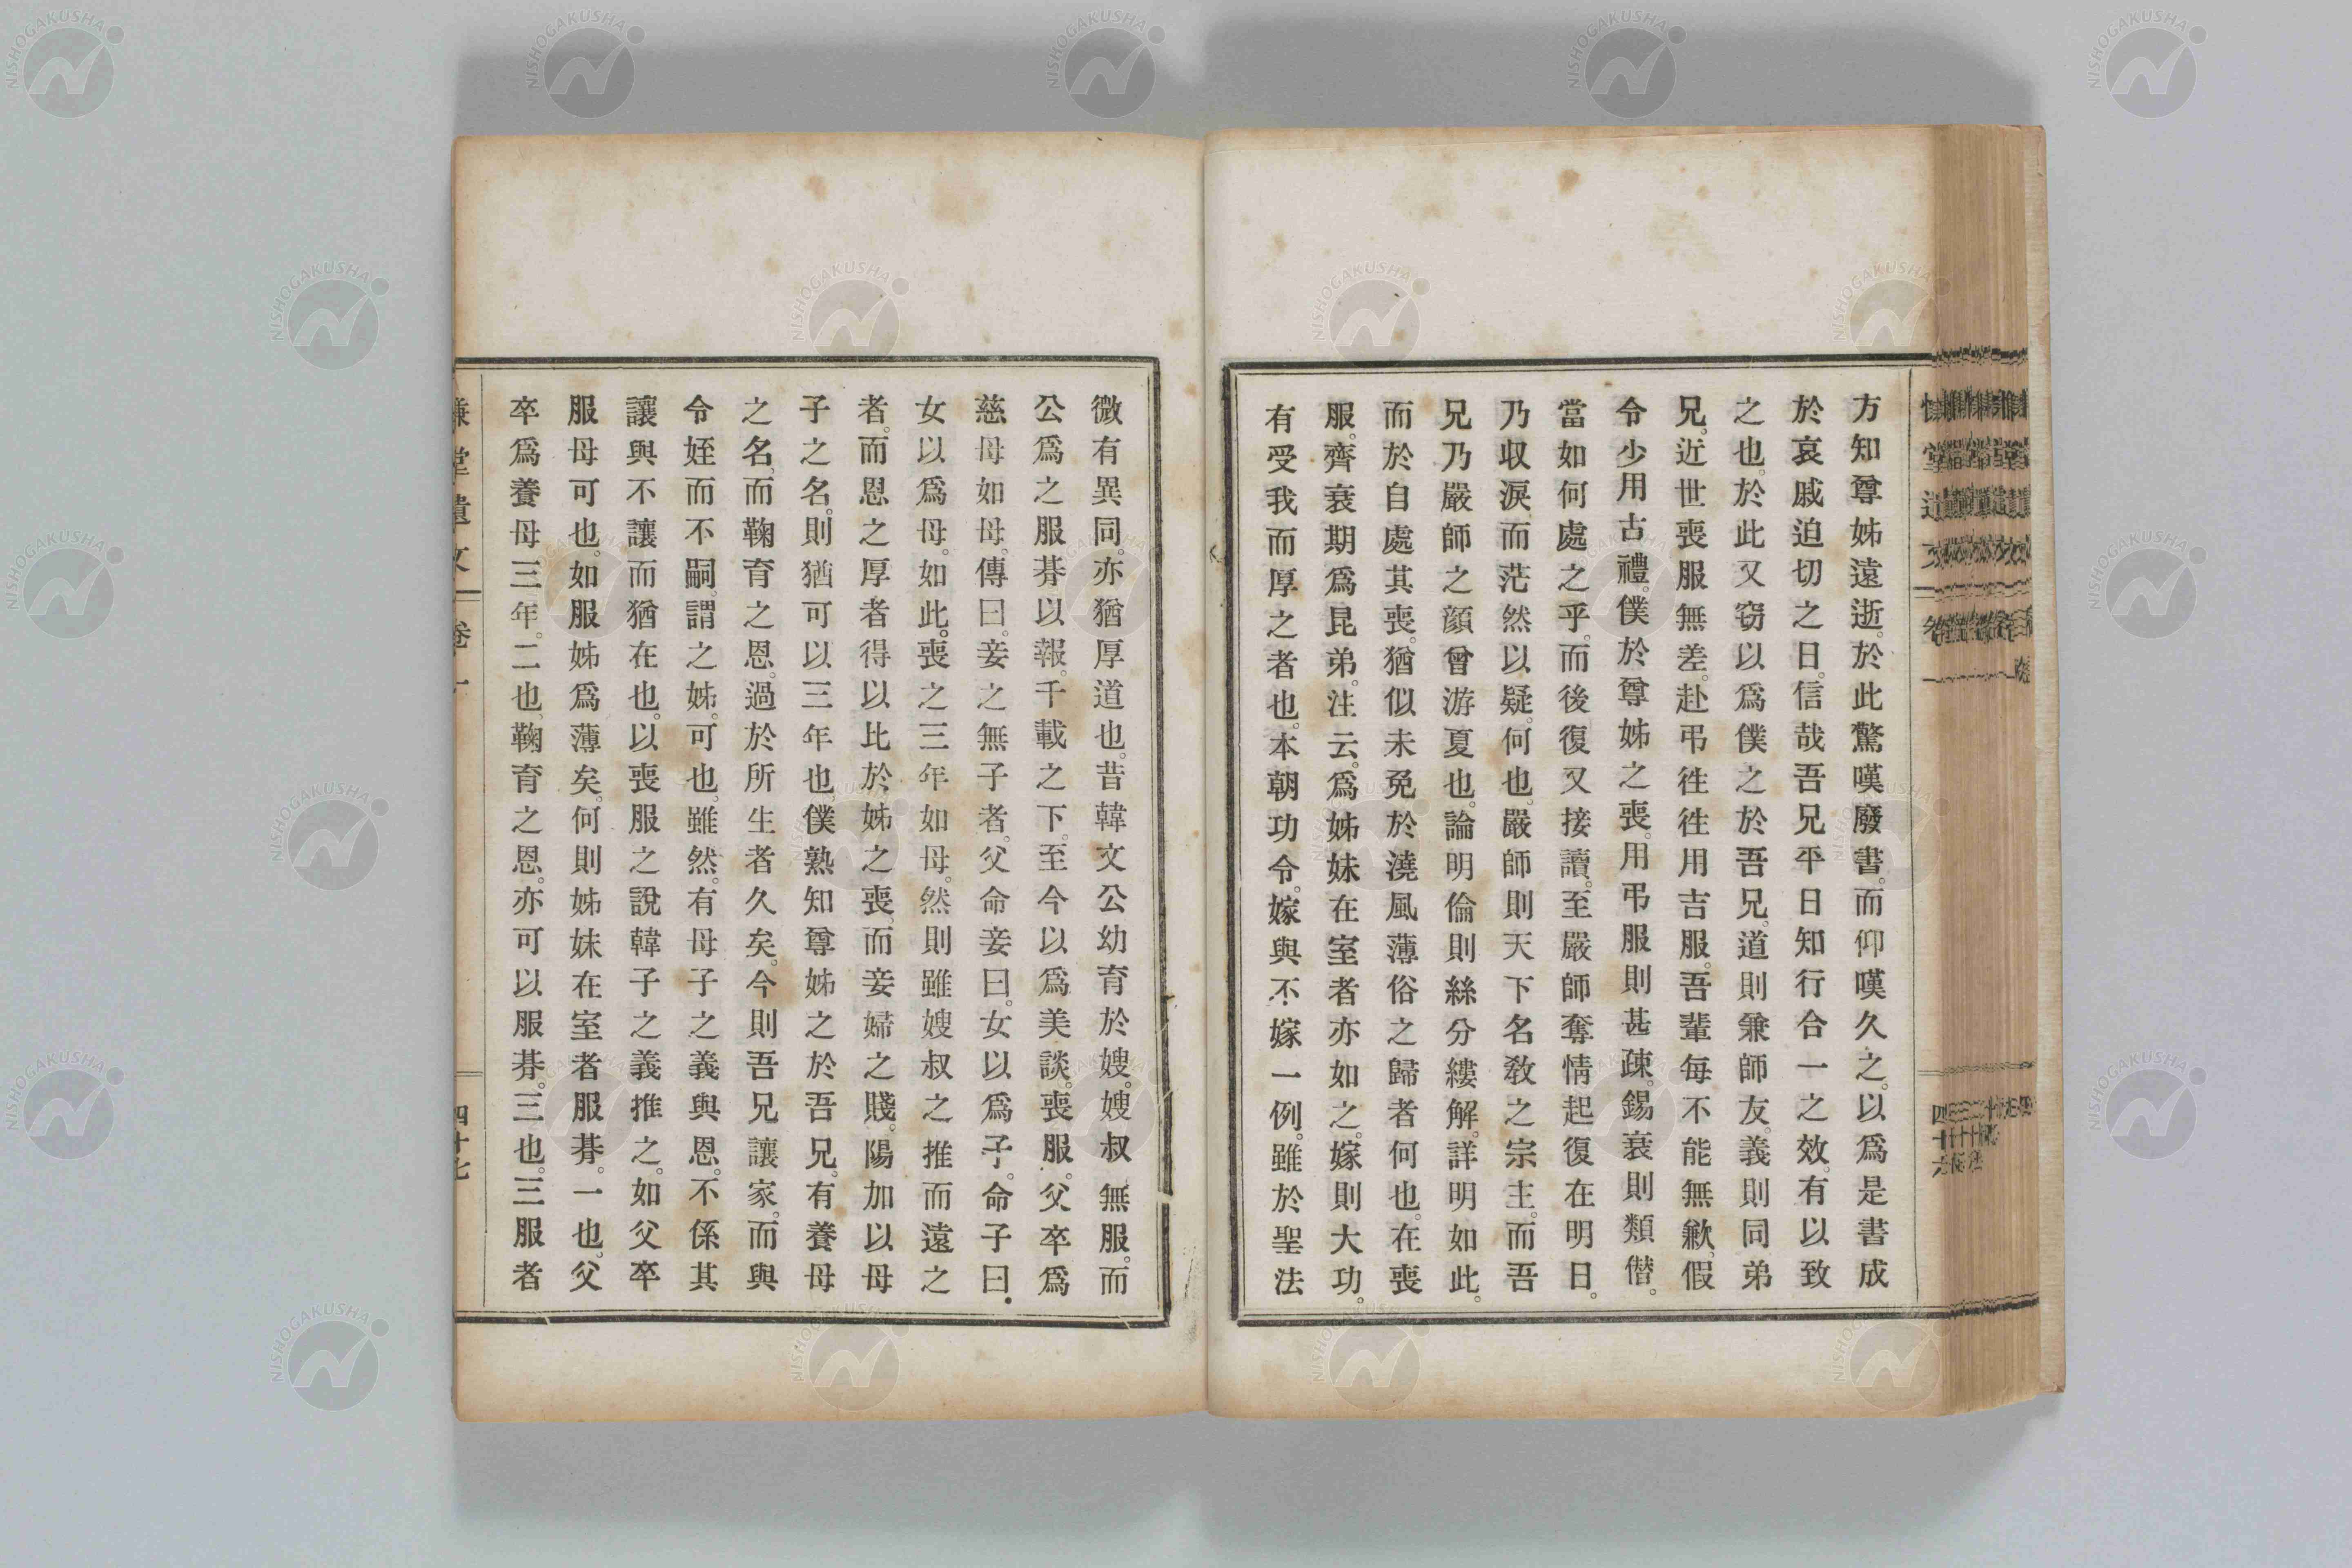 方知尊姊遠逝。於此驚嘆廢書。而仰嘆久之。以爲是書成
於哀戚迫切之日。信哉吾兄平日知行合一之效。有以致
之也。於此又窃以爲僕之於吾兄。道則兼師友。義則同弟
兄。近世喪服無差。赴弔徃徃用吉服。吾輩每不能無歉。假
令少用古禮。僕於尊姊之喪。用弔服則甚疎。錫衰則類僭。
當如何處之乎。而後復又接讀。至嚴師奪情起復在明日。
乃収淚而茫然以疑。何也。嚴師則天下名敎之宗主。而吾
兄乃嚴師之顔曾游夏也。論明倫則絲分縷解。詳明如此。
而於自處其喪。猶似未免於澆風薄俗之歸者何也。在喪
服。齊衰期爲昆弟。注云。爲姊妹在室者亦如之。嫁則大功。
有受我而厚之者也。本朝功令。嫁與不嫁一例。雖於聖法
微有異同。亦猶厚道也。昔韓文公幼育於嫂。嫂叔無服。而
公爲之服朞。以報。千載之下。至今以爲美談。喪服。父卒爲
慈母如母。傳曰。妾之無子者。父命妾曰。女以爲子。命子曰。
女以爲母。如此。喪之三年如母。然則雖嫂叔之推而遠之
者。而恩之厚者得以比於姊之喪。而妾婦之賤。陽加以母
子之名。則猶可以三年也。僕熟知尊姊之於吾兄。有養母
之名。而鞠育之恩。過於所生者久矣。今則吾兄讓家。而與
令姪而不嗣。謂之姊。可也。雖然。有母子之義與恩。不係其
讓與不讓而猶在也。以喪服之說韓子之義推之。如父卒
服母可也。如服姊爲薄矣。何則姊妹在室者服朞。一也。父
卒爲養母三年。二也。鞠育之恩。亦可以服朞。三也。三服者
堂遺文 卷一 四十七